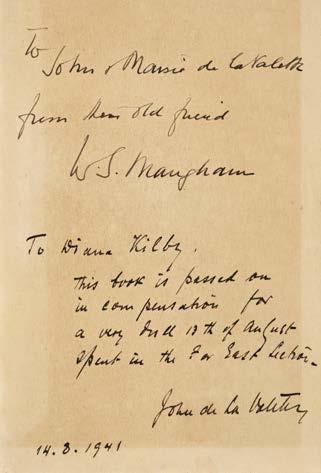 To
John & Maisie de la Valette
from their old friend
W. S. Maugham
To Diana Kilby,
This book is passed on
in compensation for
a very dull 13th of August
spent in the Far East Section.
John de La Valette
14.8.1941